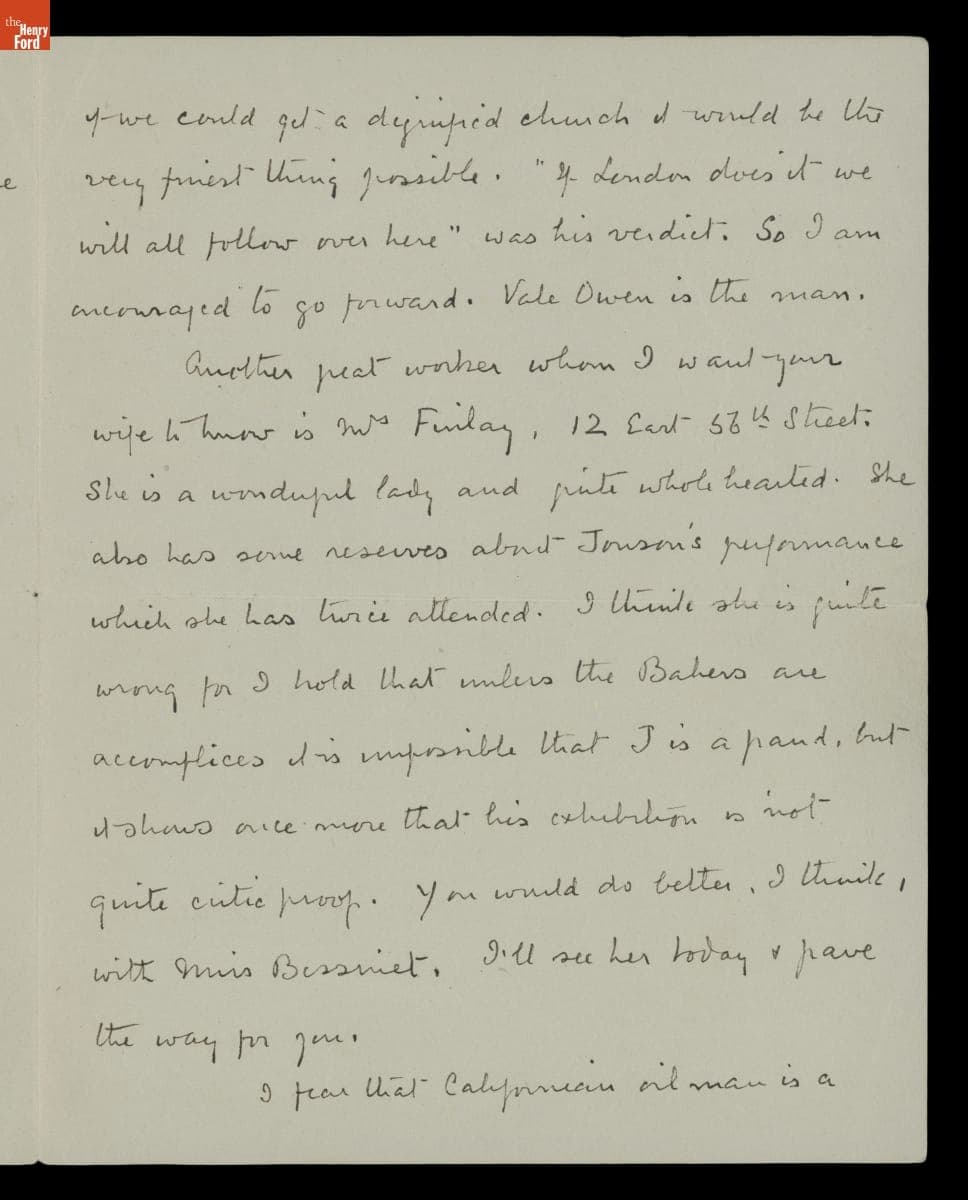 the
Henry
Ford
e
if we could get a dignified church it would be the
very finest thing possible. "If London does it we
will all follow over here" was his verdict. So I am
encouraged to go forward. Vale Owen is the man.
Another great worker whom I want your
wife to know is Mrs Finlay, 12 East 56th Street.
She is a wonderful lady and quite whole hearted. She
also has some reserves about Jonson's performance
which she has twice attended. I think she is quite
wrong for I hold that unless the Bakers are
accomplices it is impossible that J is a fraud, but
it shows once more that his exhibition is not
quite critic proof. You would do better, I think,
with Miss Bessinet. I'll see her today & pave
the way for you.
I fear that Californian oil man is a